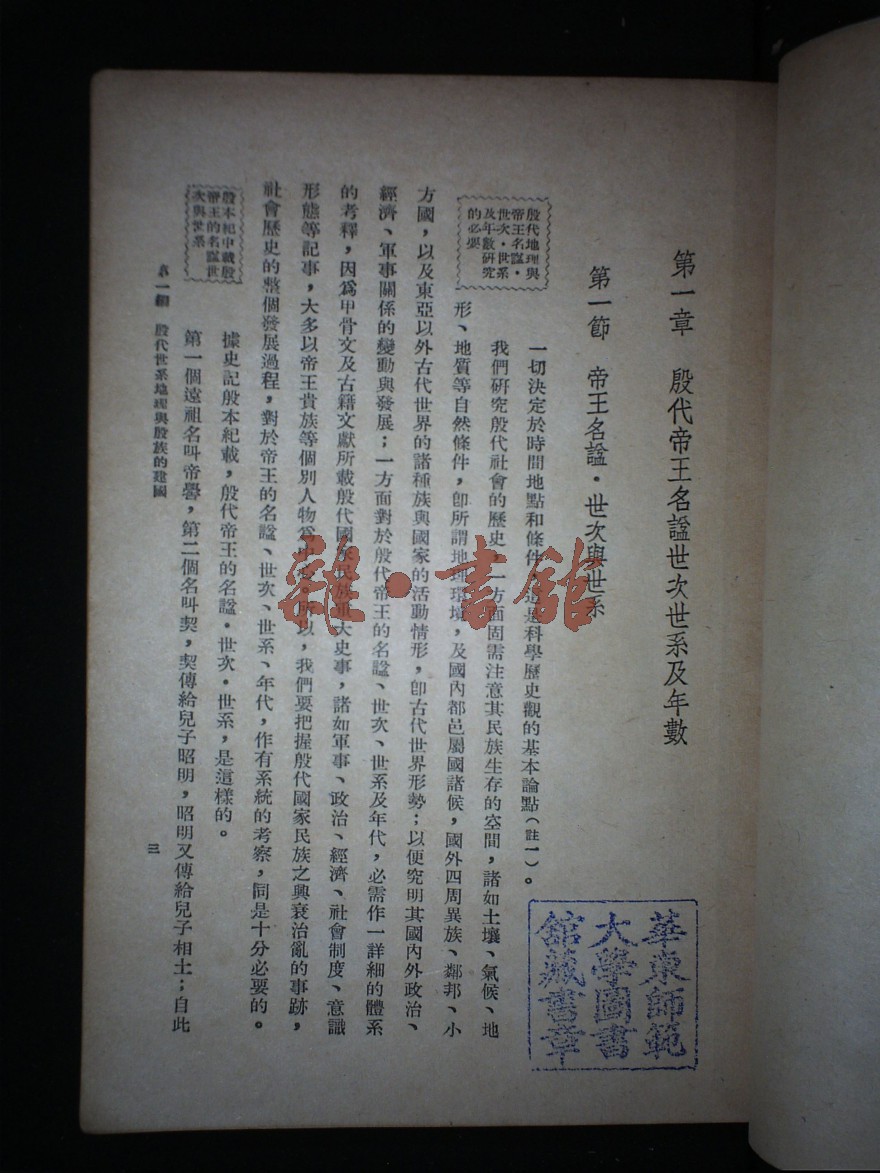 第一章　殷代帝王名謚世次世系及年數
第一節　帝王名謚・世次與世系
殷代地理與
帝王名謚・
世次・世系
及年數研究
的必要
一切決定於時間地點和條件，這是科學歷史觀的基本論點（註一）。
我們研究殷代社會的歷史，一方面固需注意其民族生存的空間，諸如土壤、氣候、地
形、地質等自然條件，卽所謂地理環境，及國內都邑屬國諸候，國外四周異族、鄰邦、小
方國，以及東亞以外古代世界的諸種族與國家的活動情形，卽古代世界形勢；以便究明其國內外政治、
經濟、軍事關係的變動與發展；一方面對於殷代帝王的名謚、世次、世系及年代，必需作一詳細的體系
的考釋，因爲甲骨文及古籍文獻所載殷代國家民族重大史事，諸如軍事、政治、經濟、社會制度、意識
形態等記事，大多以帝王貴族等個別人物爲中心。所以，我們要把握殷代國家民族之興衰治亂的事跡，
社會歷史的整個發展過程，對於帝王的名謚、世次、世系、年代，作有系統的考察，同是十分必要的。
殷本紀中載殷
帝王的名謚世
次與世系
據史記殷本紀載，殷代帝王的名謚・世次・世系，是這樣的。
第一個遠祖名叫帝嚳，第二個名叫契，契傳給兒子昭明，昭明又傳給兒子相土；自此
第一編　殷代世系地理與殷族的建國
三
華東師範
大學圖書
館藏書章
雜・書館